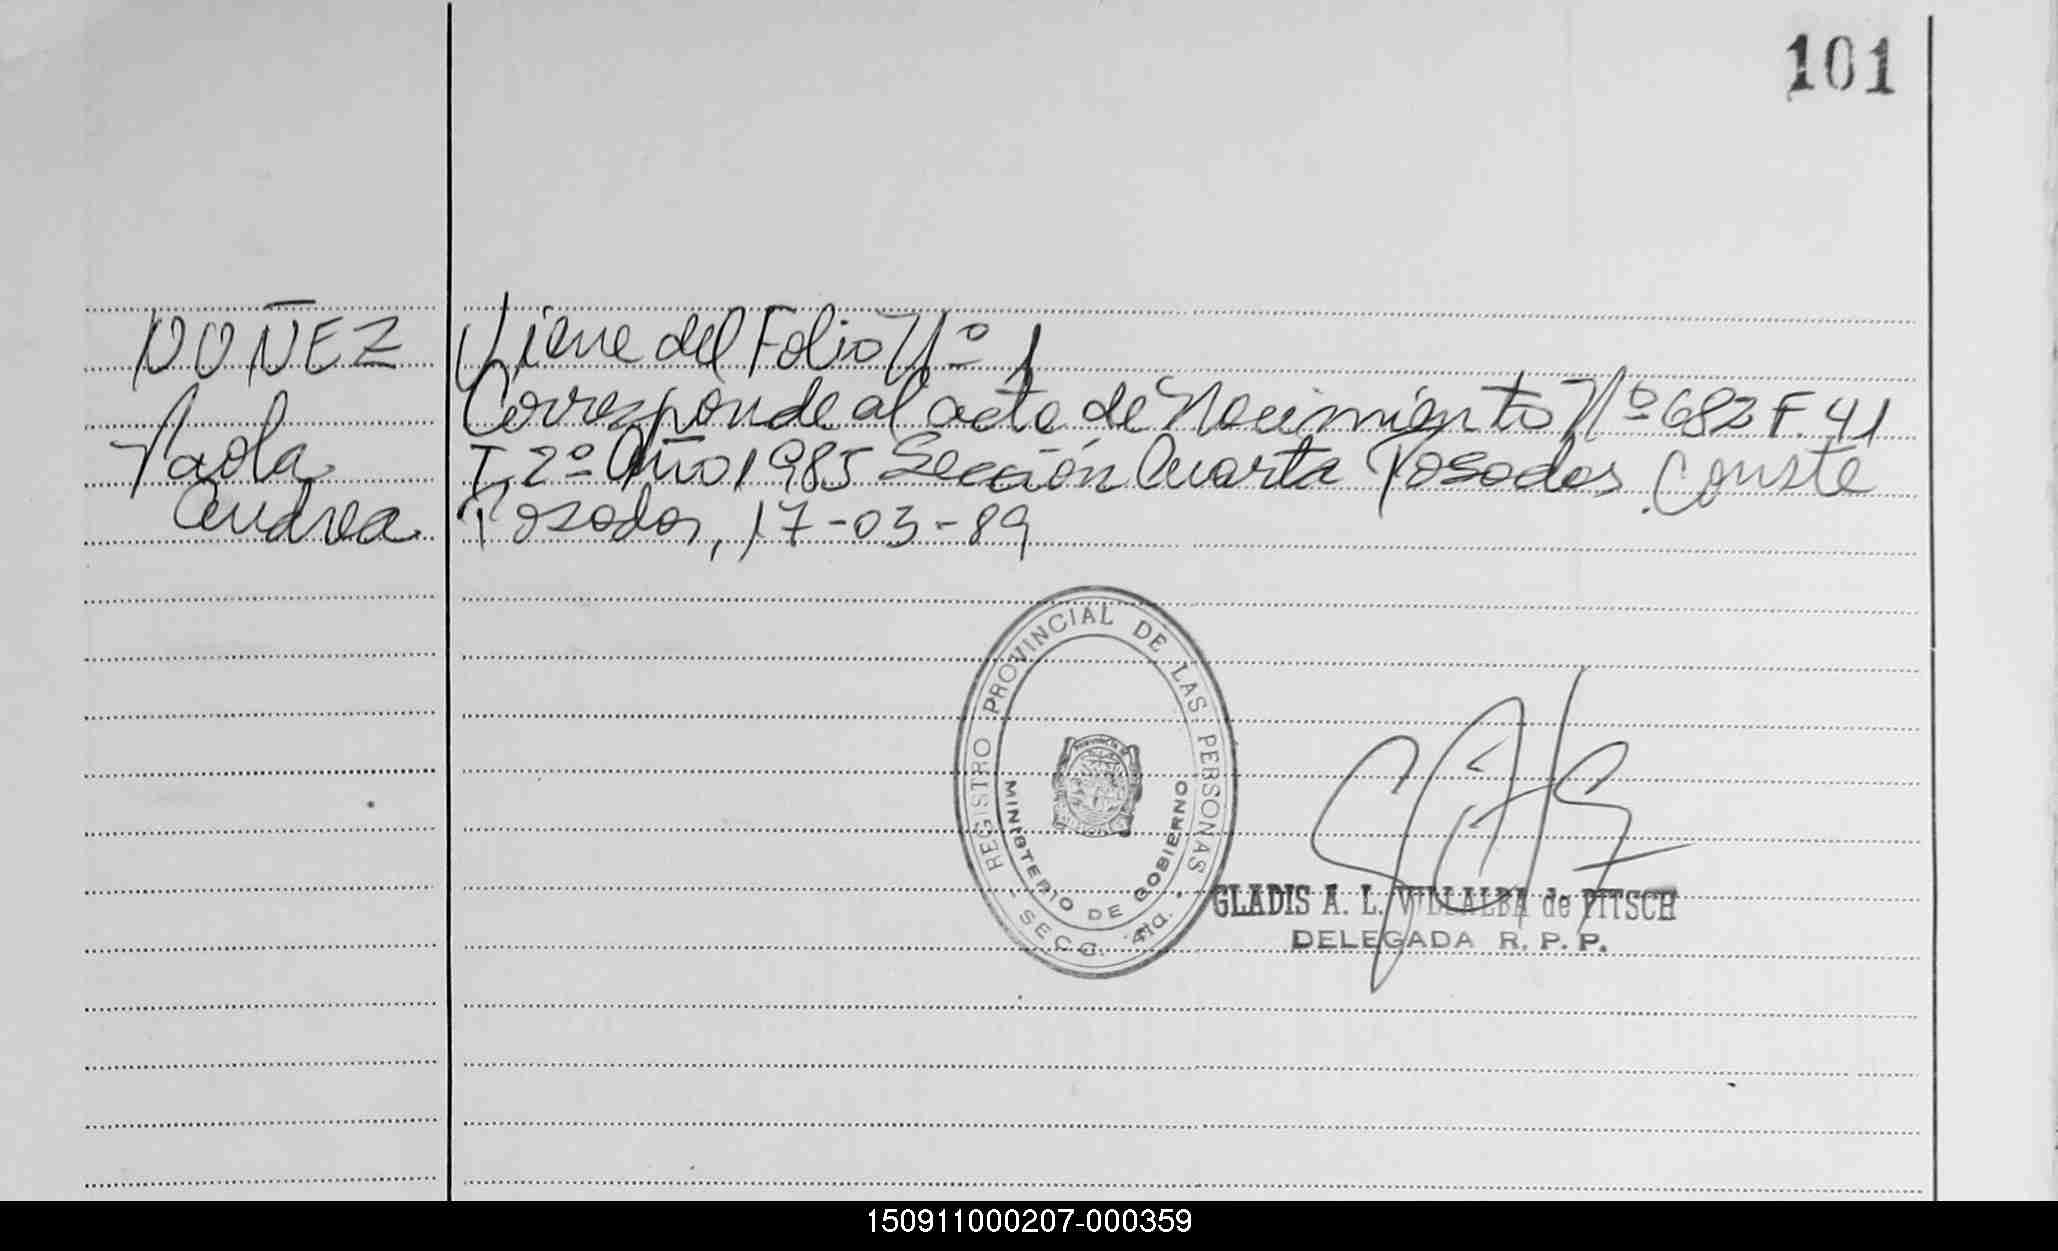 101
NUÑEZ
Paola
Andrea
Viene del Folio Nº 1
Corresponde al acta de Nacimiento Nº 682 F. 41
T. 2º Año 1985 Sección Cuarta Posadas. Conste
Posadas, 17-03-89
REGISTRO PROVINCIAL DE LAS PERSONAS
MINISTERIO DE GOBIERNO
SECC. 4ta.
GLADIS A. L. VILLALBA de PITSCH
DELEGADA R. P. P.
150911000207-000359